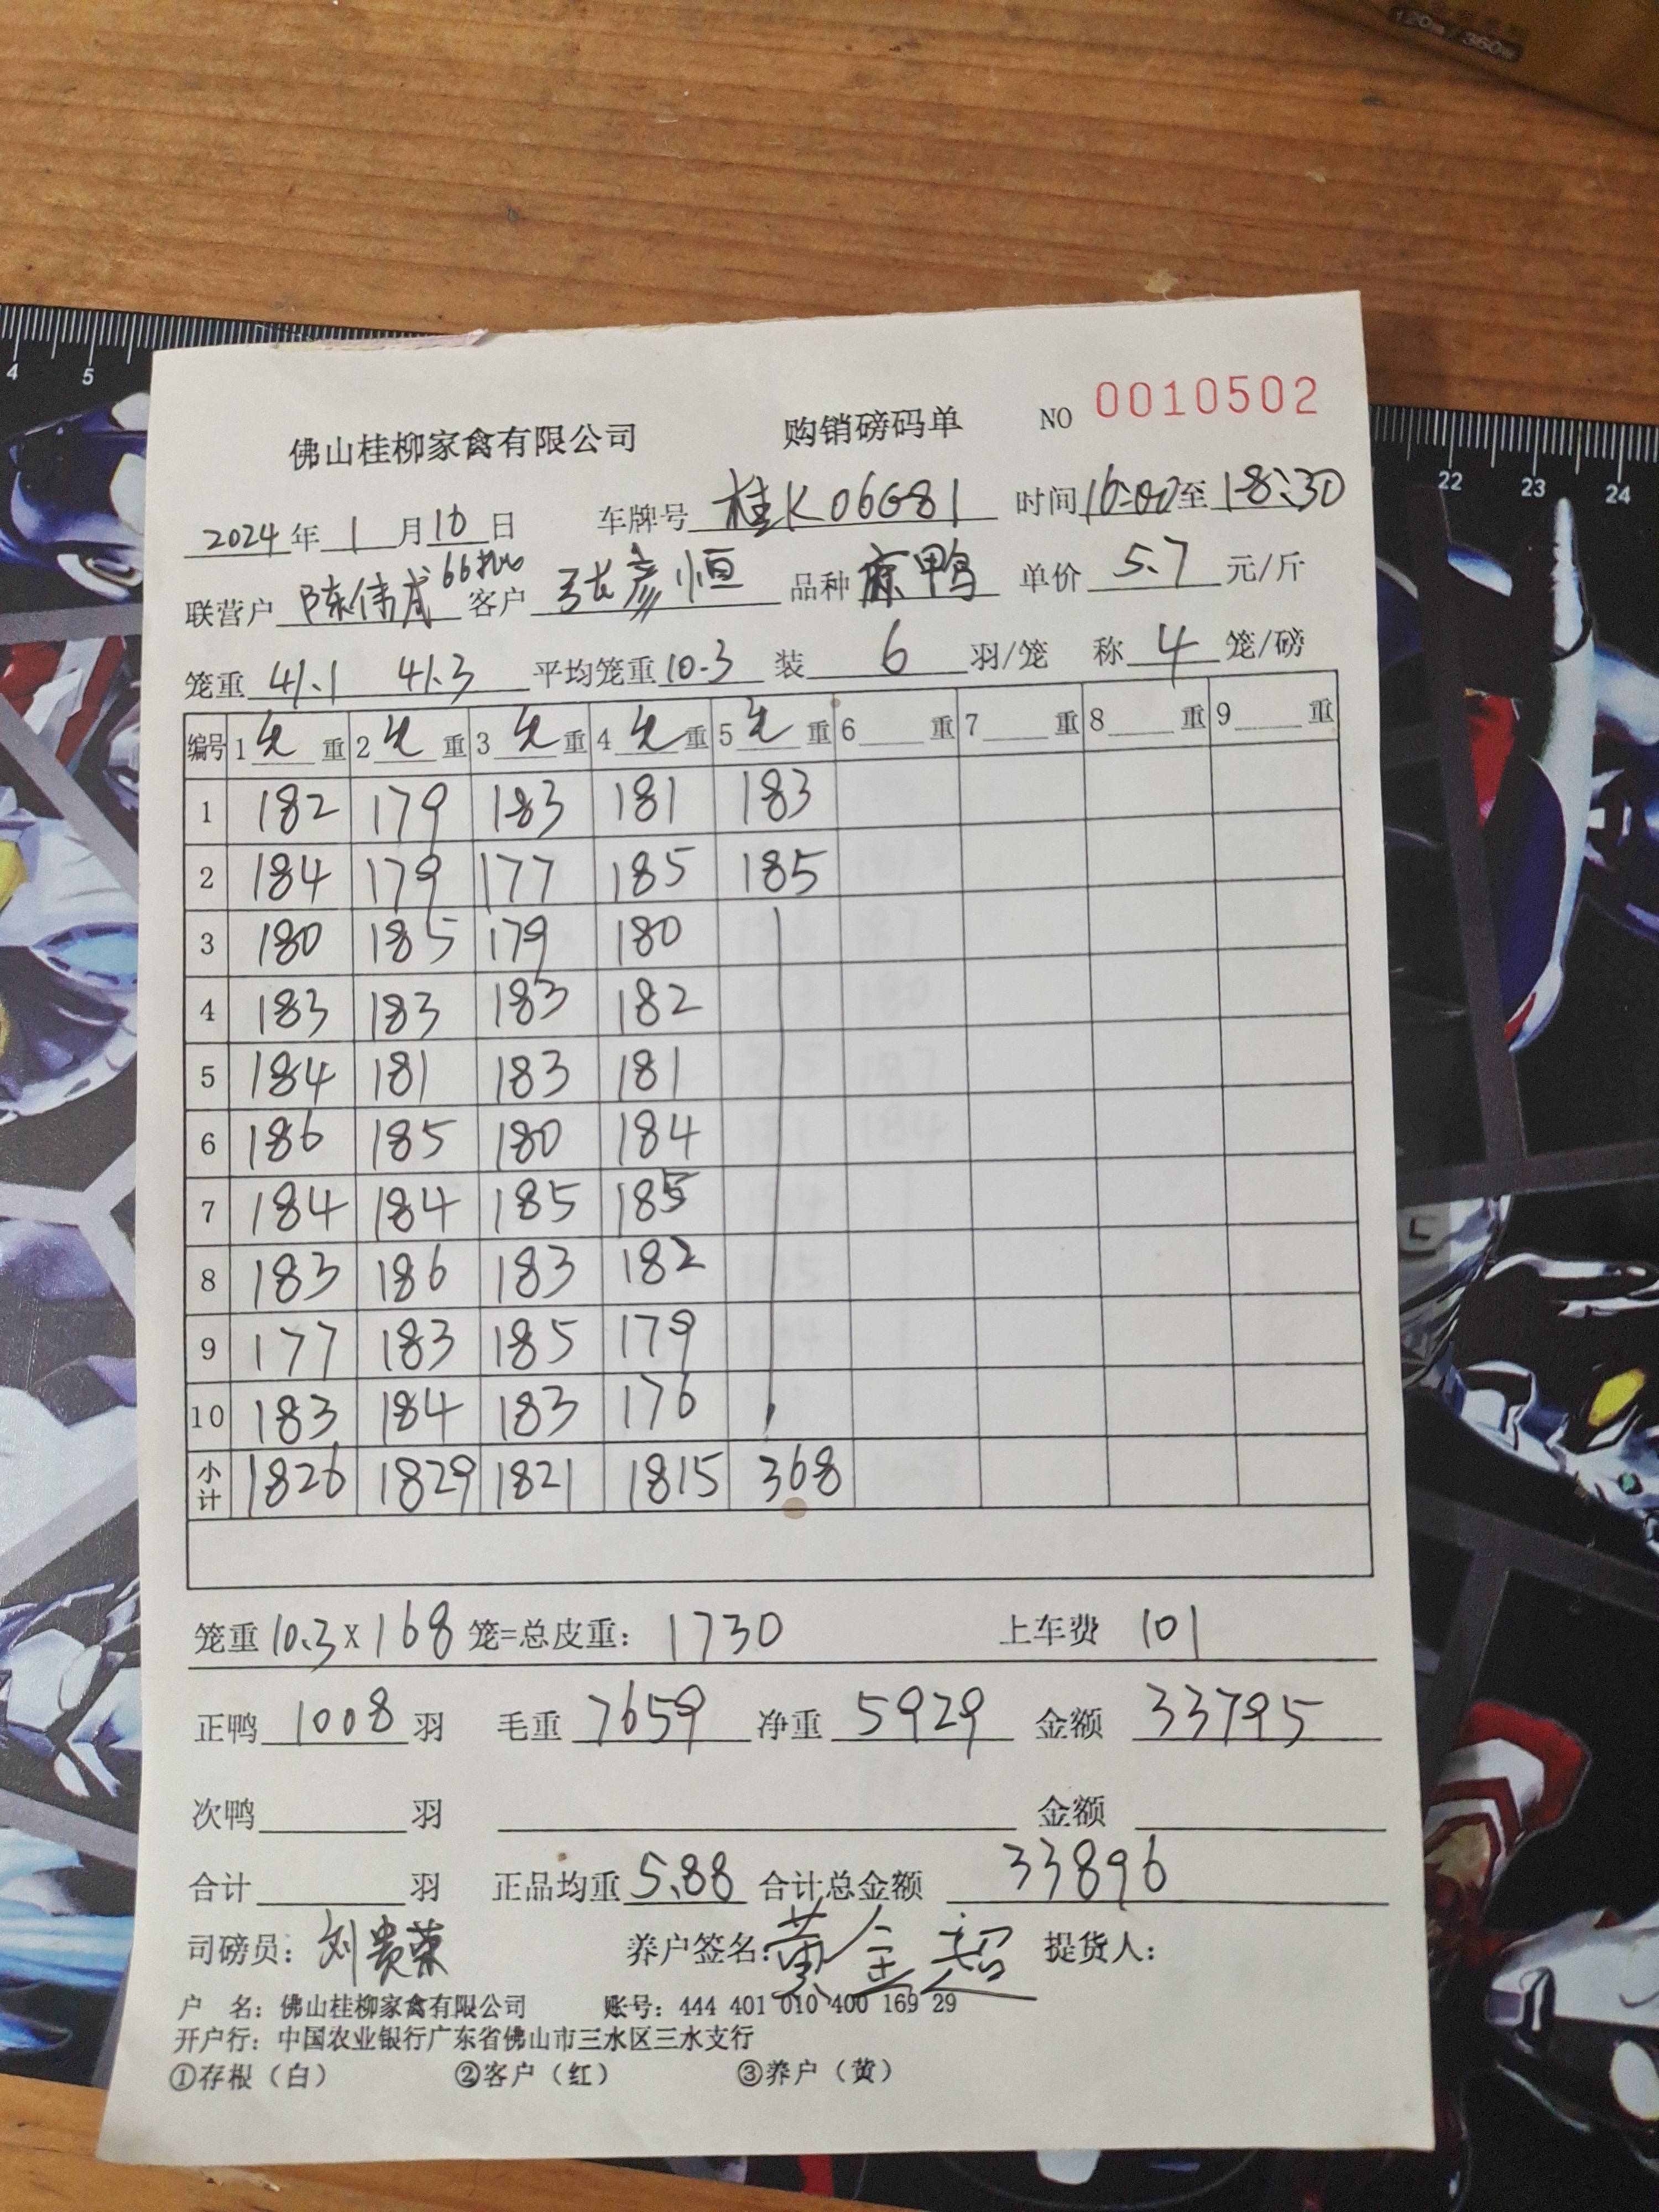 120w/360w
4 5
22 23 24
佛山桂柳家禽有限公司 购销磅码单 NO 0010502
2024年1月10日 车牌号 桂K06G81 时间16:00至18:30
联营户 陈伟成 66批 客户 张彦恒 品种 麻鸭 单价 5.7 元/斤
笼重 41.1 41.3 平均笼重10.3 装 6 羽/笼 称 4 笼/磅
编号 1 毛 重 2 毛 重 3 毛 重 4 毛 重 5 毛 重 6 重 7 重 8 重 9 重
1 182 179 183 181 183
2 184 179 177 185 185
3 180 185 179 180
4 183 183 183 182
5 184 181 183 181
6 186 185 180 184
7 184 184 185 185
8 183 186 183 182
9 177 183 185 179
10 183 184 183 176
小计 1826 1829 1821 1815 368
笼重 10.3 X 168 笼=总皮重： 1730 上车费 101
正鸭 1008 羽 毛重 7659 净重 5929 金额 33795
次鸭 羽 金额
合计 羽 正品均重 5.88 合计总金额 33896
司磅员： 刘贵荣 养户签名： 黄金超 提货人：
户 名： 佛山桂柳家禽有限公司 账号： 444 401 010 400 169 29
开户行： 中国农业银行广东省佛山市三水区三水支行
①存根（白） ②客户（红） ③养户（黄）